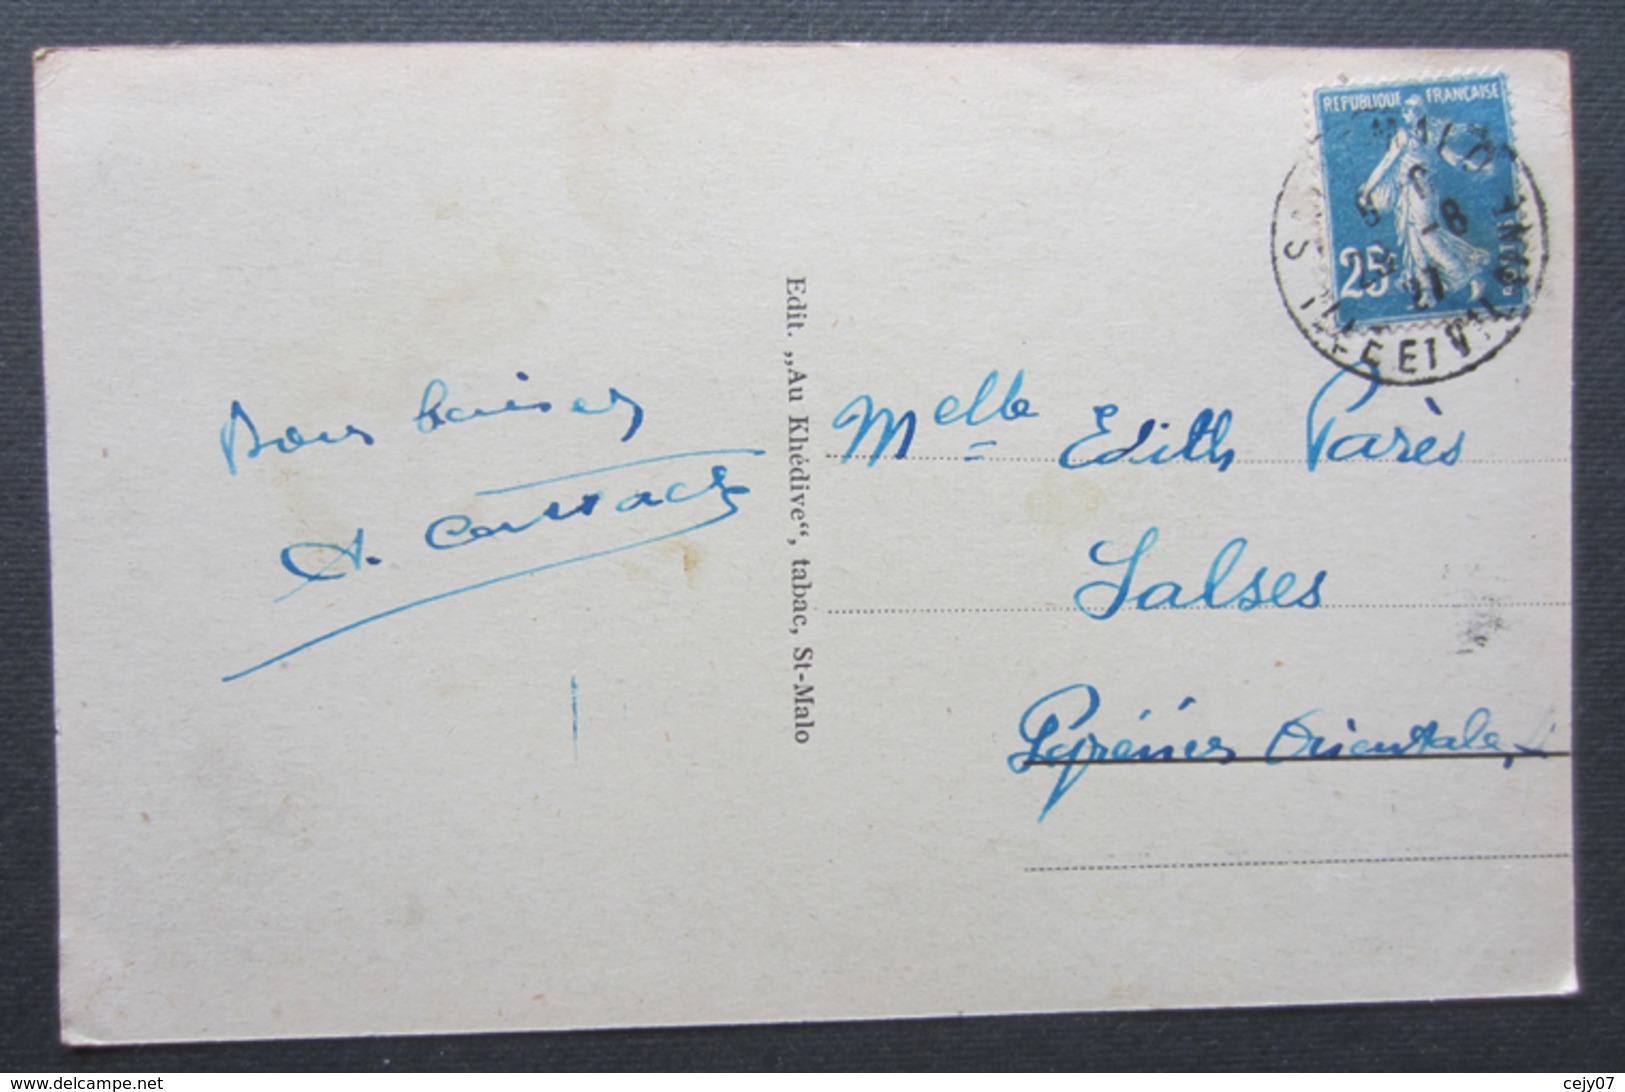 Bons baisers
Edit. „Au Khédive“, tabac, St-Malo
REPUBLIQUE FRANÇAISE
25c
MALO
-8
27
Melle Edith Parès
Salses
Pyrénées Orientales
www.delcampe.net
cejy07